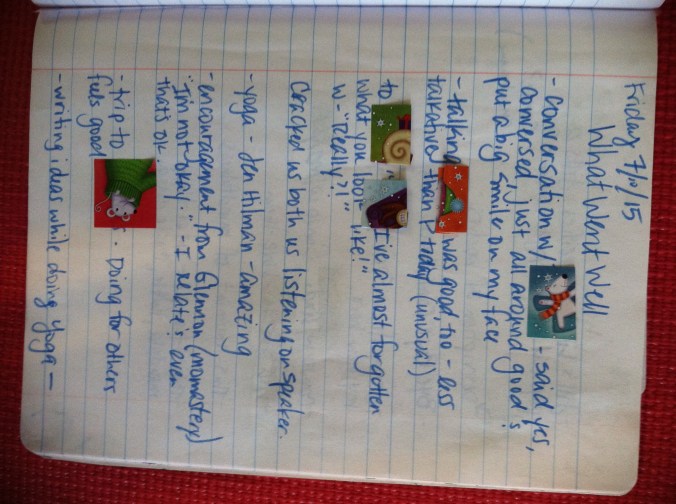 Friday 7/10/15
What Went Well
- conversation w/ - said yes,
conversed, just all around good &
put a big smile on my face
- talking was good, too - less
talkative than P today (unusual)
to "I've almost forgotten
what you look like!"
W- "Really?!"
Cracked us both us listening on speaker.
- yoga - Jen Hilman - amazing
- encouragement from Glennon (momastery)
"I'm not okay." - I relate, & even
that's ok.
- trip to s. Doing for others
feels good
- writing ideas while doing yoga -